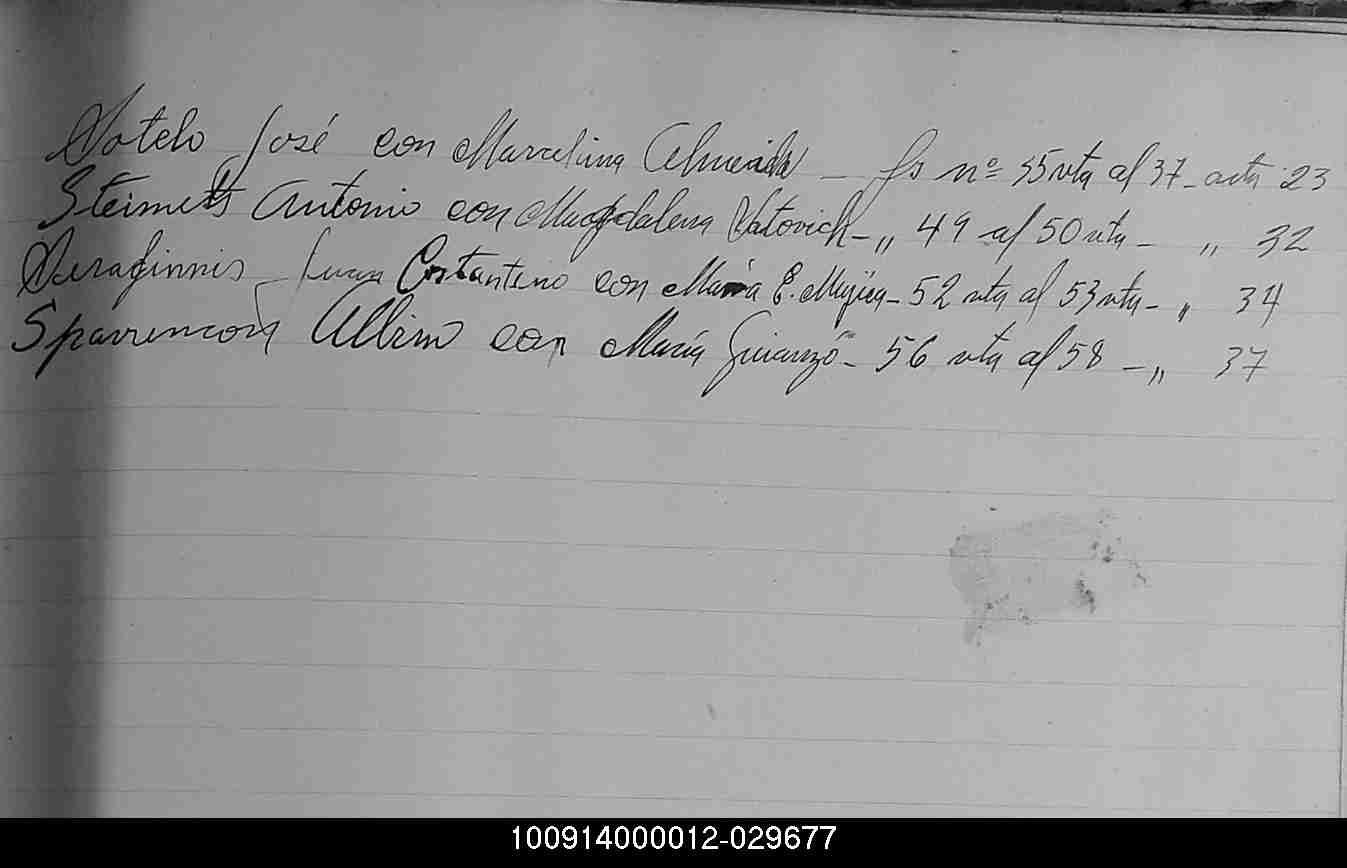 Sotelo José con Marcelina Almeida - fs nº 35 vta al 37 - acta 23
Steimetz Antonio con Magdalena Vatovich - „ 49 al 50 vta - „ 32
Serafinnis Juan Costantino con María E. Mujica - 52 vta al 53 vta - „ 34
Albino con María - 56 vta al 58 - „ 37
100914000012-029677